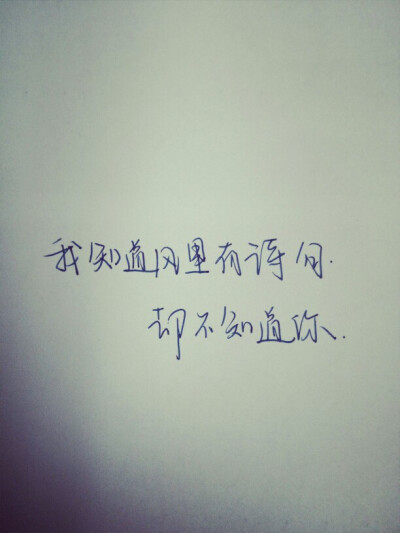 我知道风里有诗句.
却不知道你.